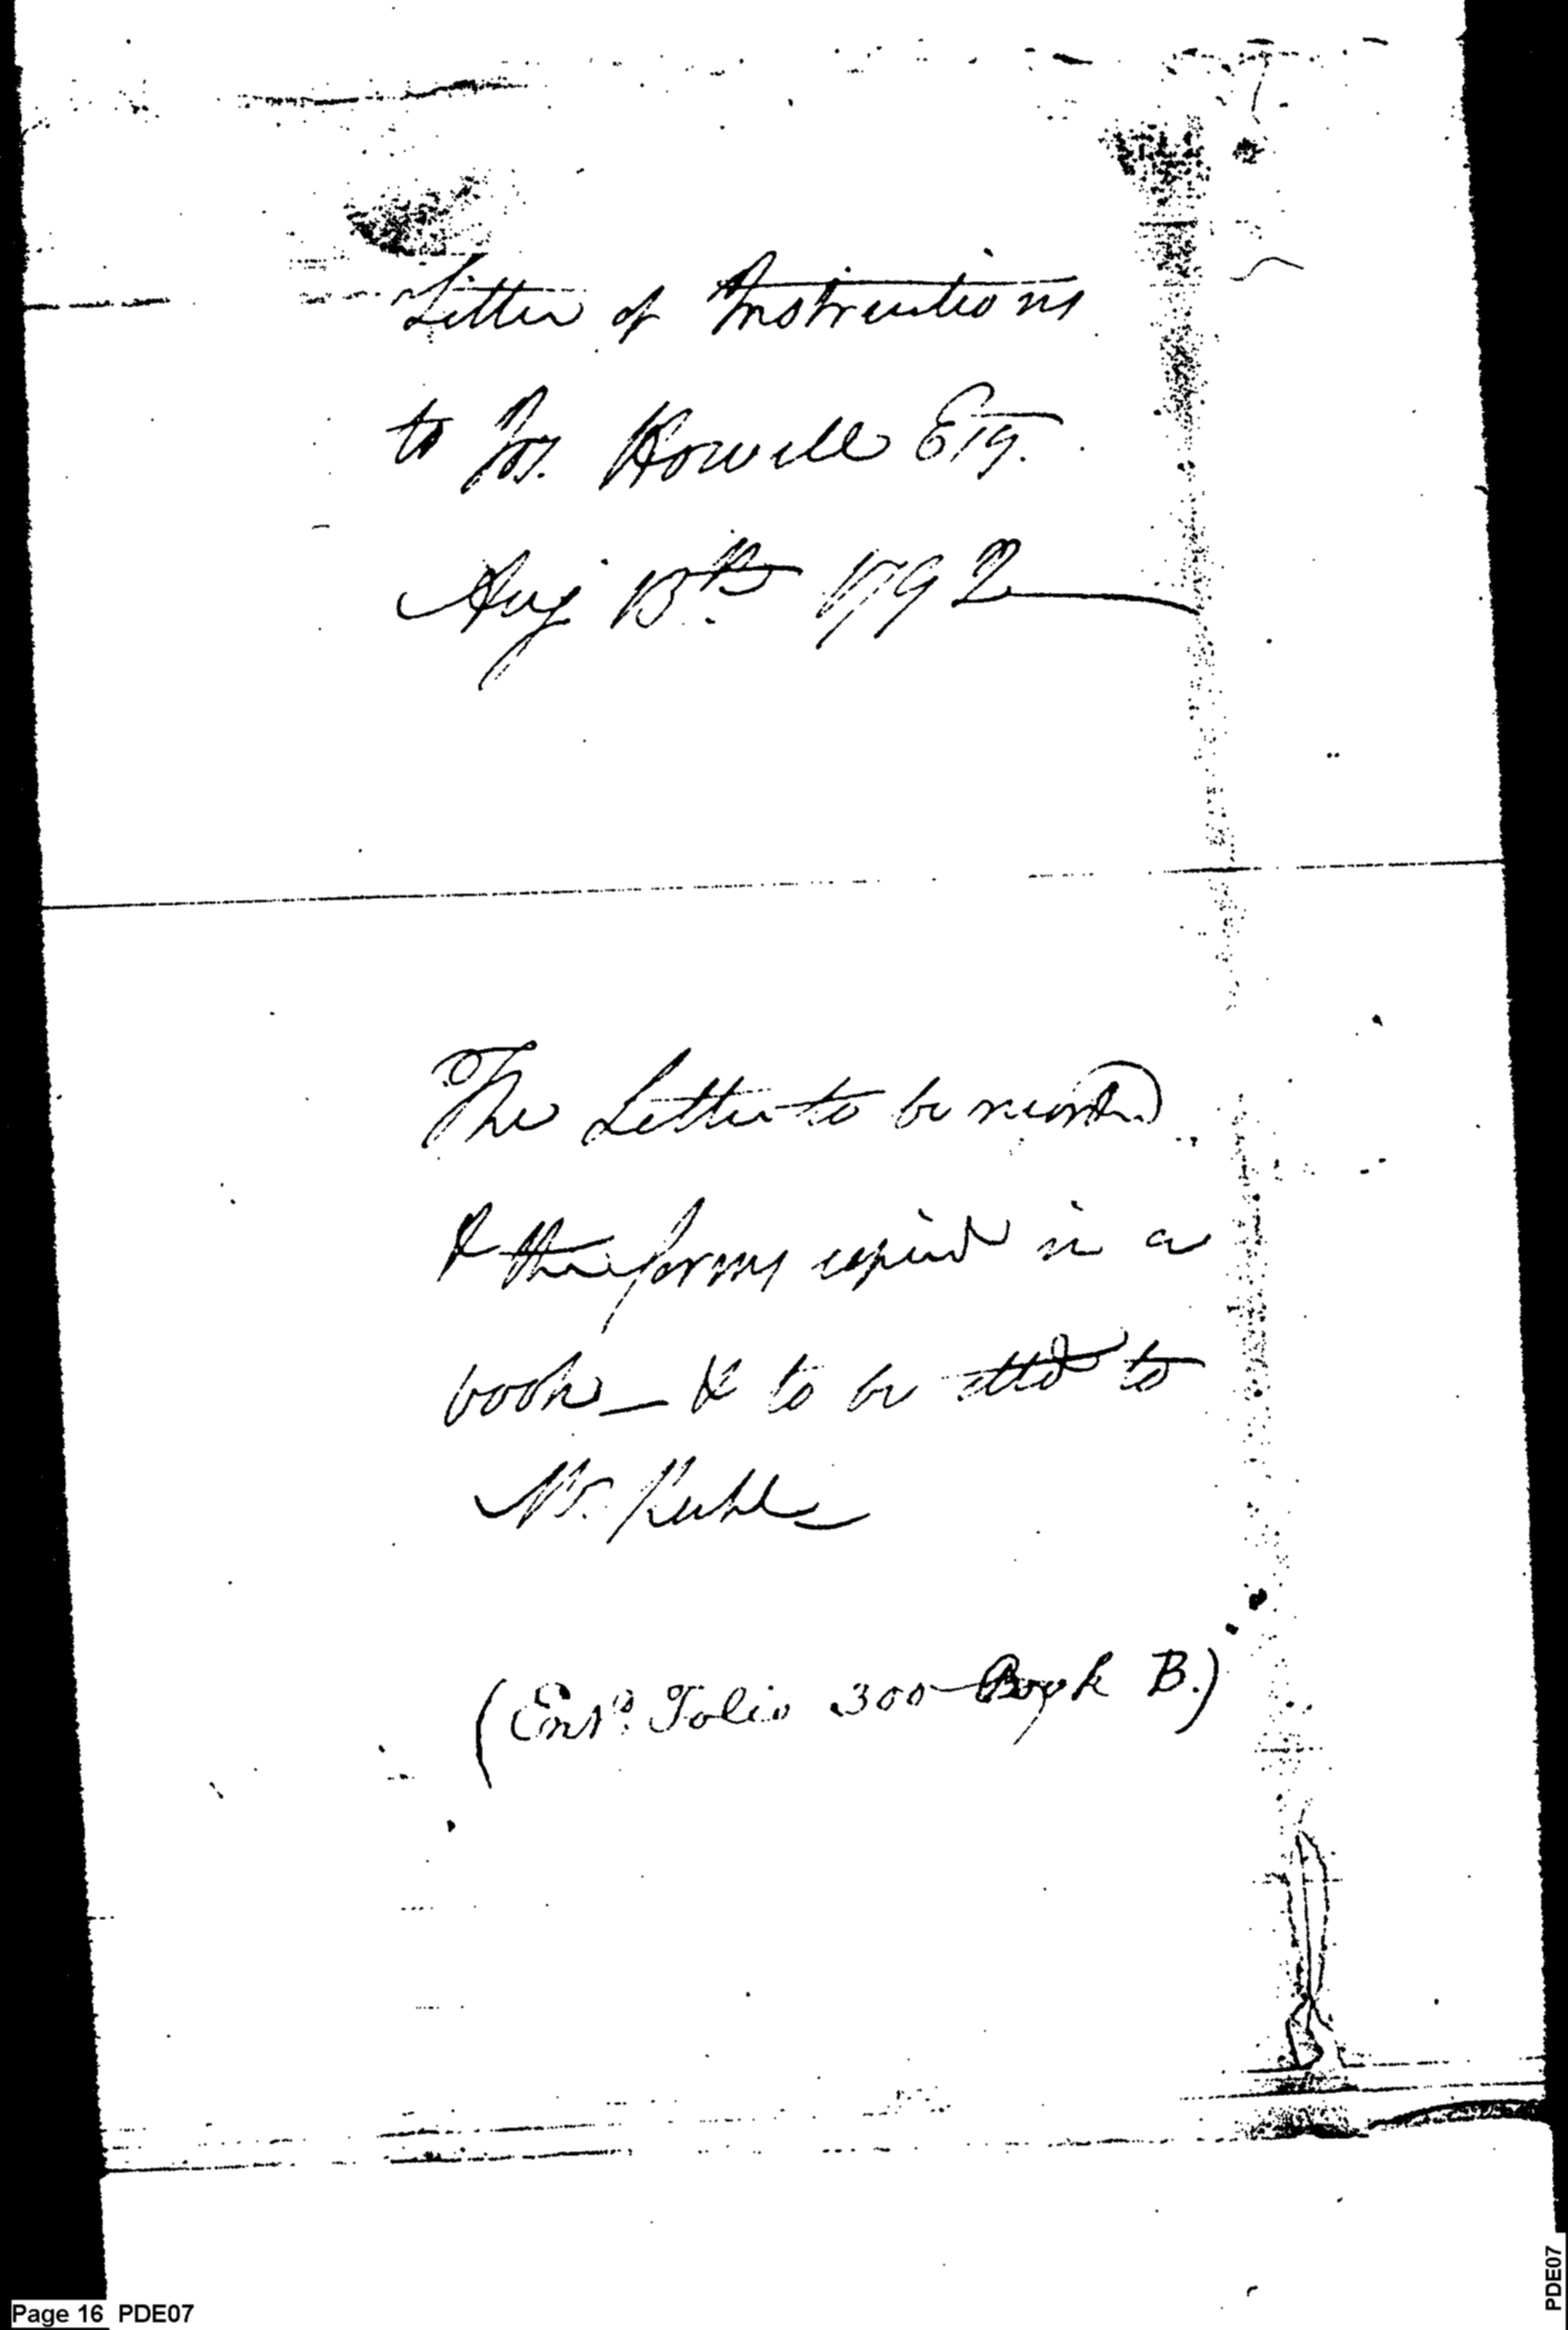 Letter of Instructions
to Jos. Howell Esq.
Aug 13th. 1792
The Letter to be recorded
& the forms copied in a
book _ & to be attd to
Mr. Kuhl
(Entd. Folio 300 Book B.)
Page 16 PDE07
PDE07